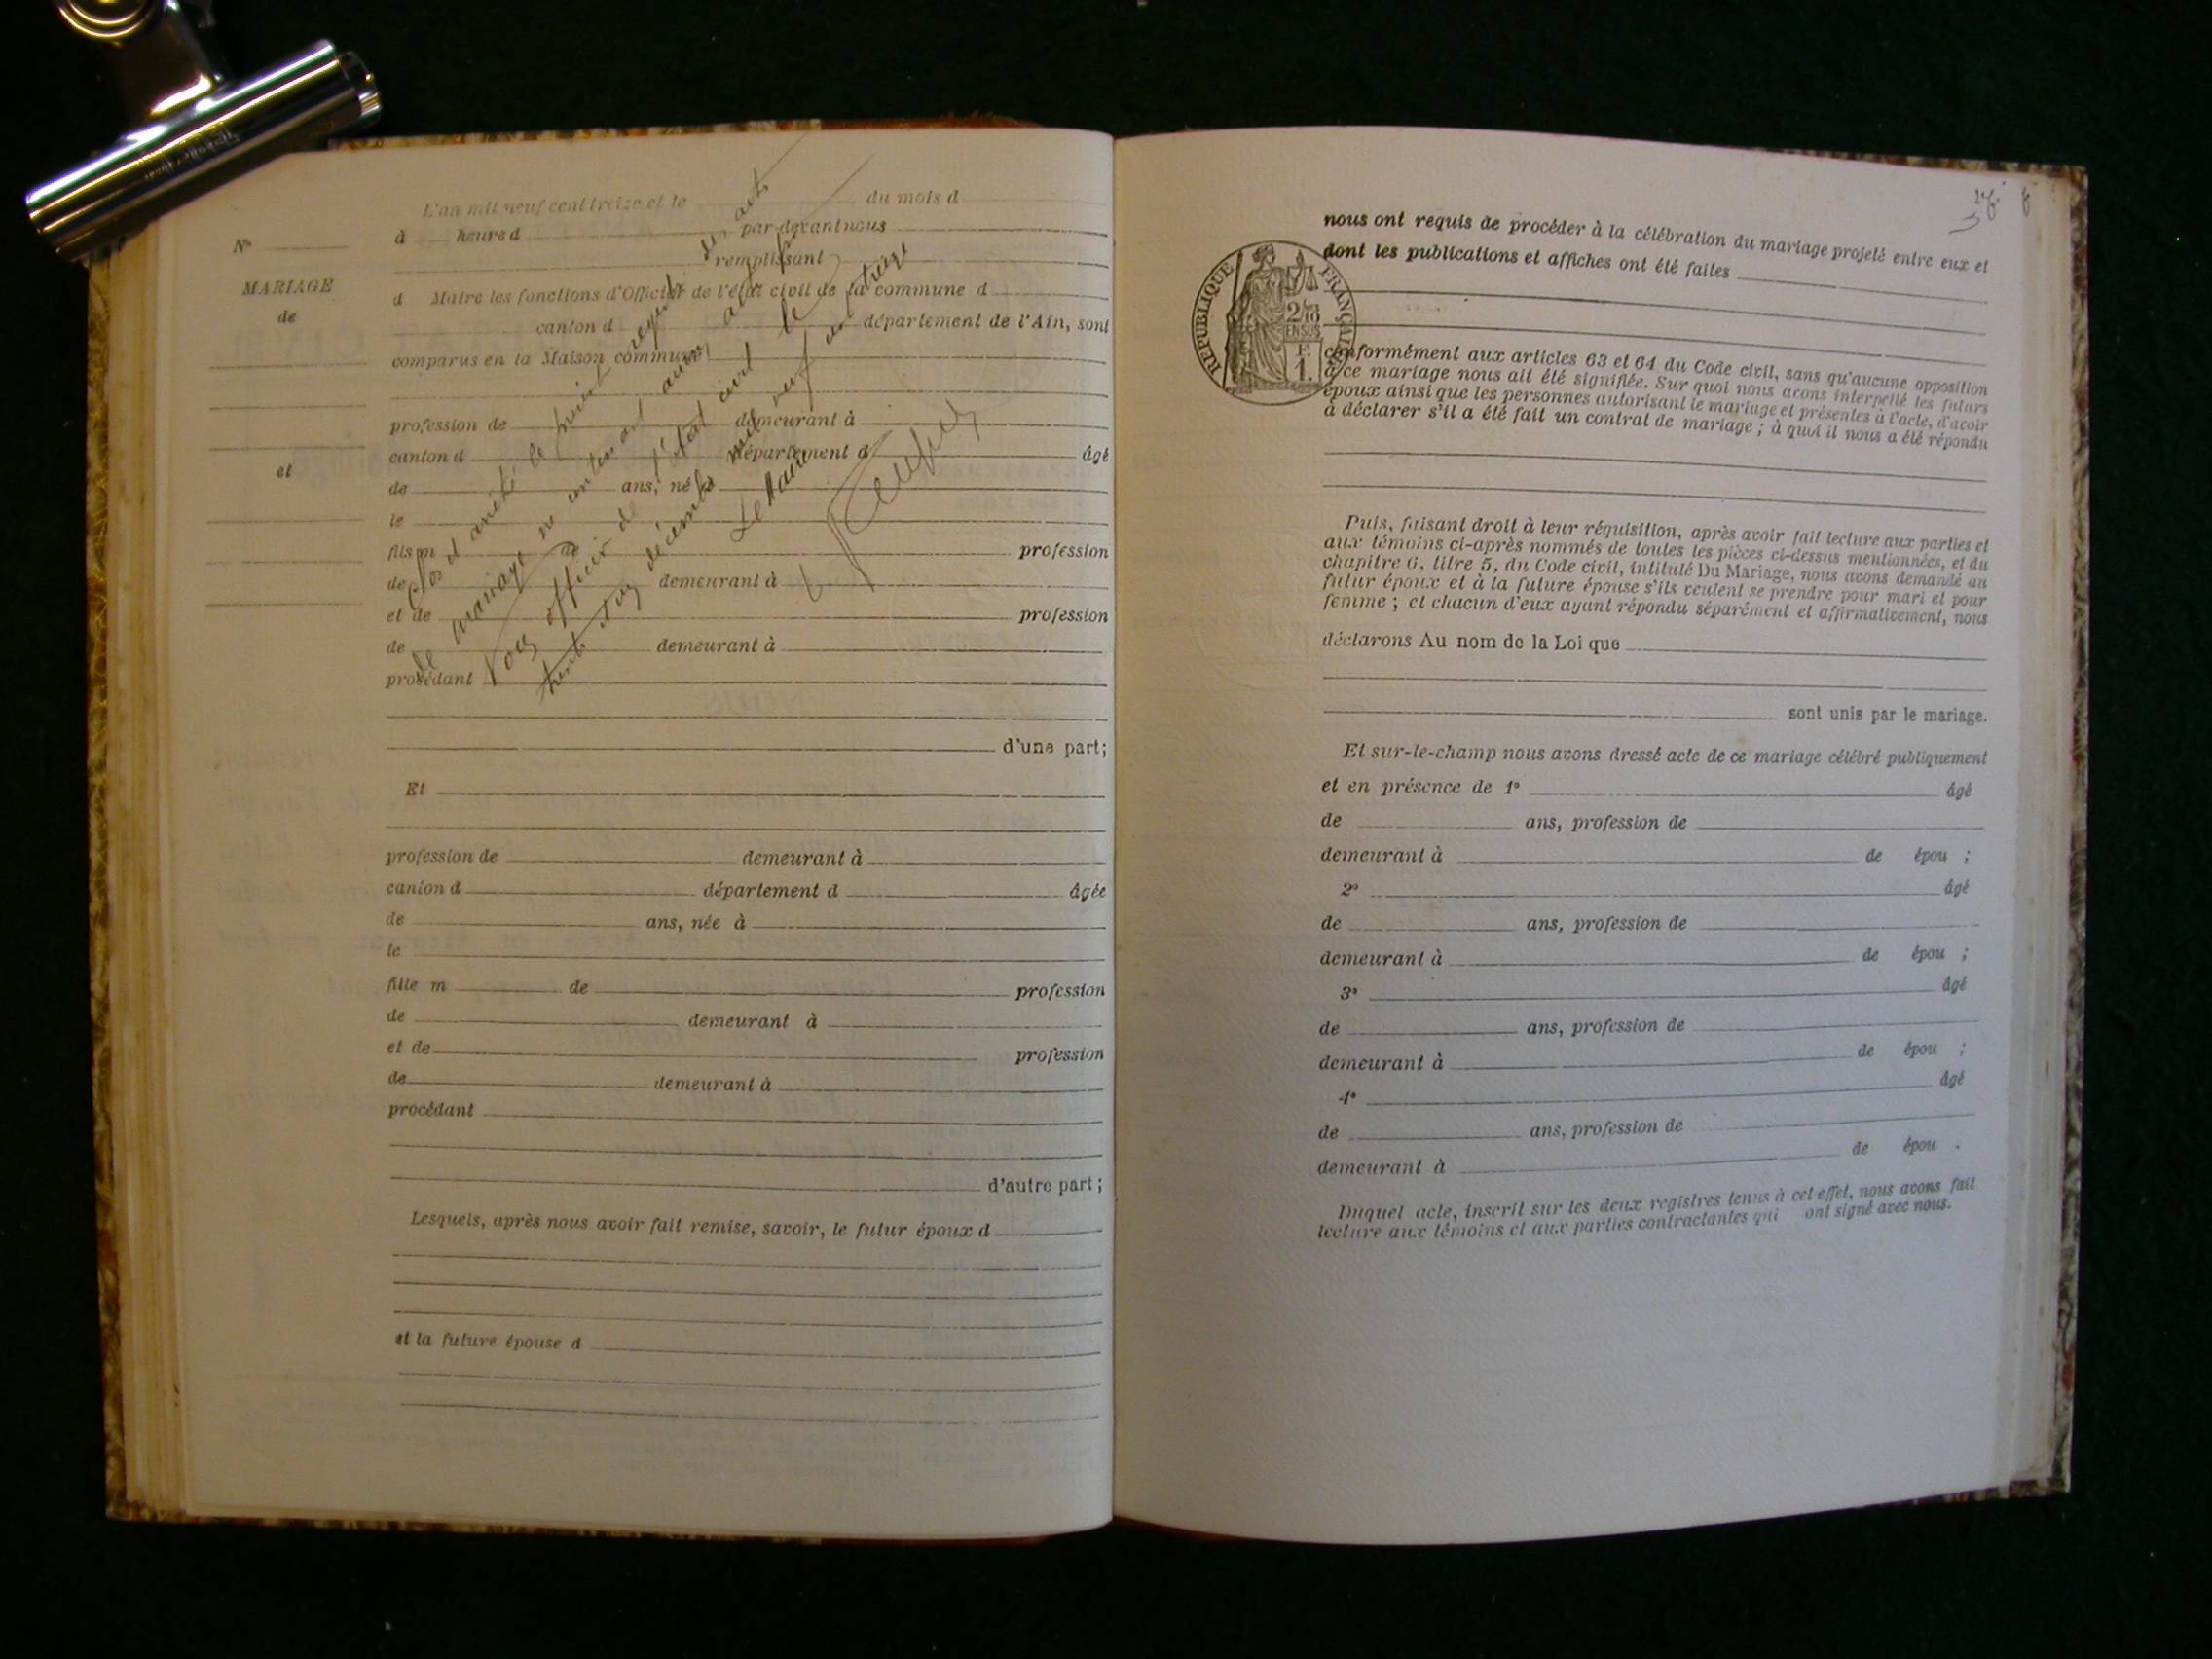 L'an mil neuf cent treize et le du mois d
N°
à heure d par-devant nous
remplissant
MARIAGE
de
et
d Maire les fonctions d'Officier de l'état civil de la commune d
canton d département de l'Ain, sont
comparus en la Maison commune
profession de demeurant à
canton d département d âgé
de ans, né à
le
fils m de profession
de demeurant à
et de profession
de demeurant à
procédant
d'une part;
Clos et arrêté le présent registre des actes
de mariage ne contenant aucun acte par
nous officier de l'état civil le
trente et un décembre mil neuf cent treize
Le Maire
Et
profession de demeurant à
canton d département d âgée
de ans, née à
le
fille m de profession
de demeurant à
et de profession
de demeurant à
procédant
d'autre part;
Lesquels, après nous avoir fait remise, savoir, le futur époux d
et la future épouse d
nous ont requis de procéder à la célébration du mariage projeté entre eux et
dont les publications et affiches ont été faites
RÉPUBLIQUE FRANÇAISE
2/10
EN SUS
F.
1.
conformément aux articles 63 et 64 du Code civil, sans qu'aucune opposition
à ce mariage nous ait été signifiée. Sur quoi nous avons interpellé les futurs
époux ainsi que les personnes autorisant le mariage et présentes à l'acte, d'avoir
à déclarer s'il a été fait un contrat de mariage ; à quoi il nous a été répondu
Puis, faisant droit à leur réquisition, après avoir fait lecture aux parties et
aux témoins ci-après nommés de toutes les pièces ci-dessus mentionnées, et du
chapitre 6, titre 5, du Code civil, intitulé Du Mariage, nous avons demandé au
futur époux et à la future épouse s'ils veulent se prendre pour mari et pour
femme ; et chacun d'eux ayant répondu séparément et affirmativement, nous
déclarons Au nom de la Loi que
sont unis par le mariage.
Et sur-le-champ nous avons dressé acte de ce mariage célébré publiquement
et en présence de 1° âgé
de ans, profession de
demeurant à de épou ;
2° âgé
de ans, profession de
demeurant à de épou ;
3° âgé
de ans, profession de
demeurant à de épou ;
4° âgé
de ans, profession de
demeurant à de épou .
Duquel acte, inscrit sur les deux registres tenus à cet effet, nous avons fait
lecture aux témoins et aux parties contractantes qui ont signé avec nous.